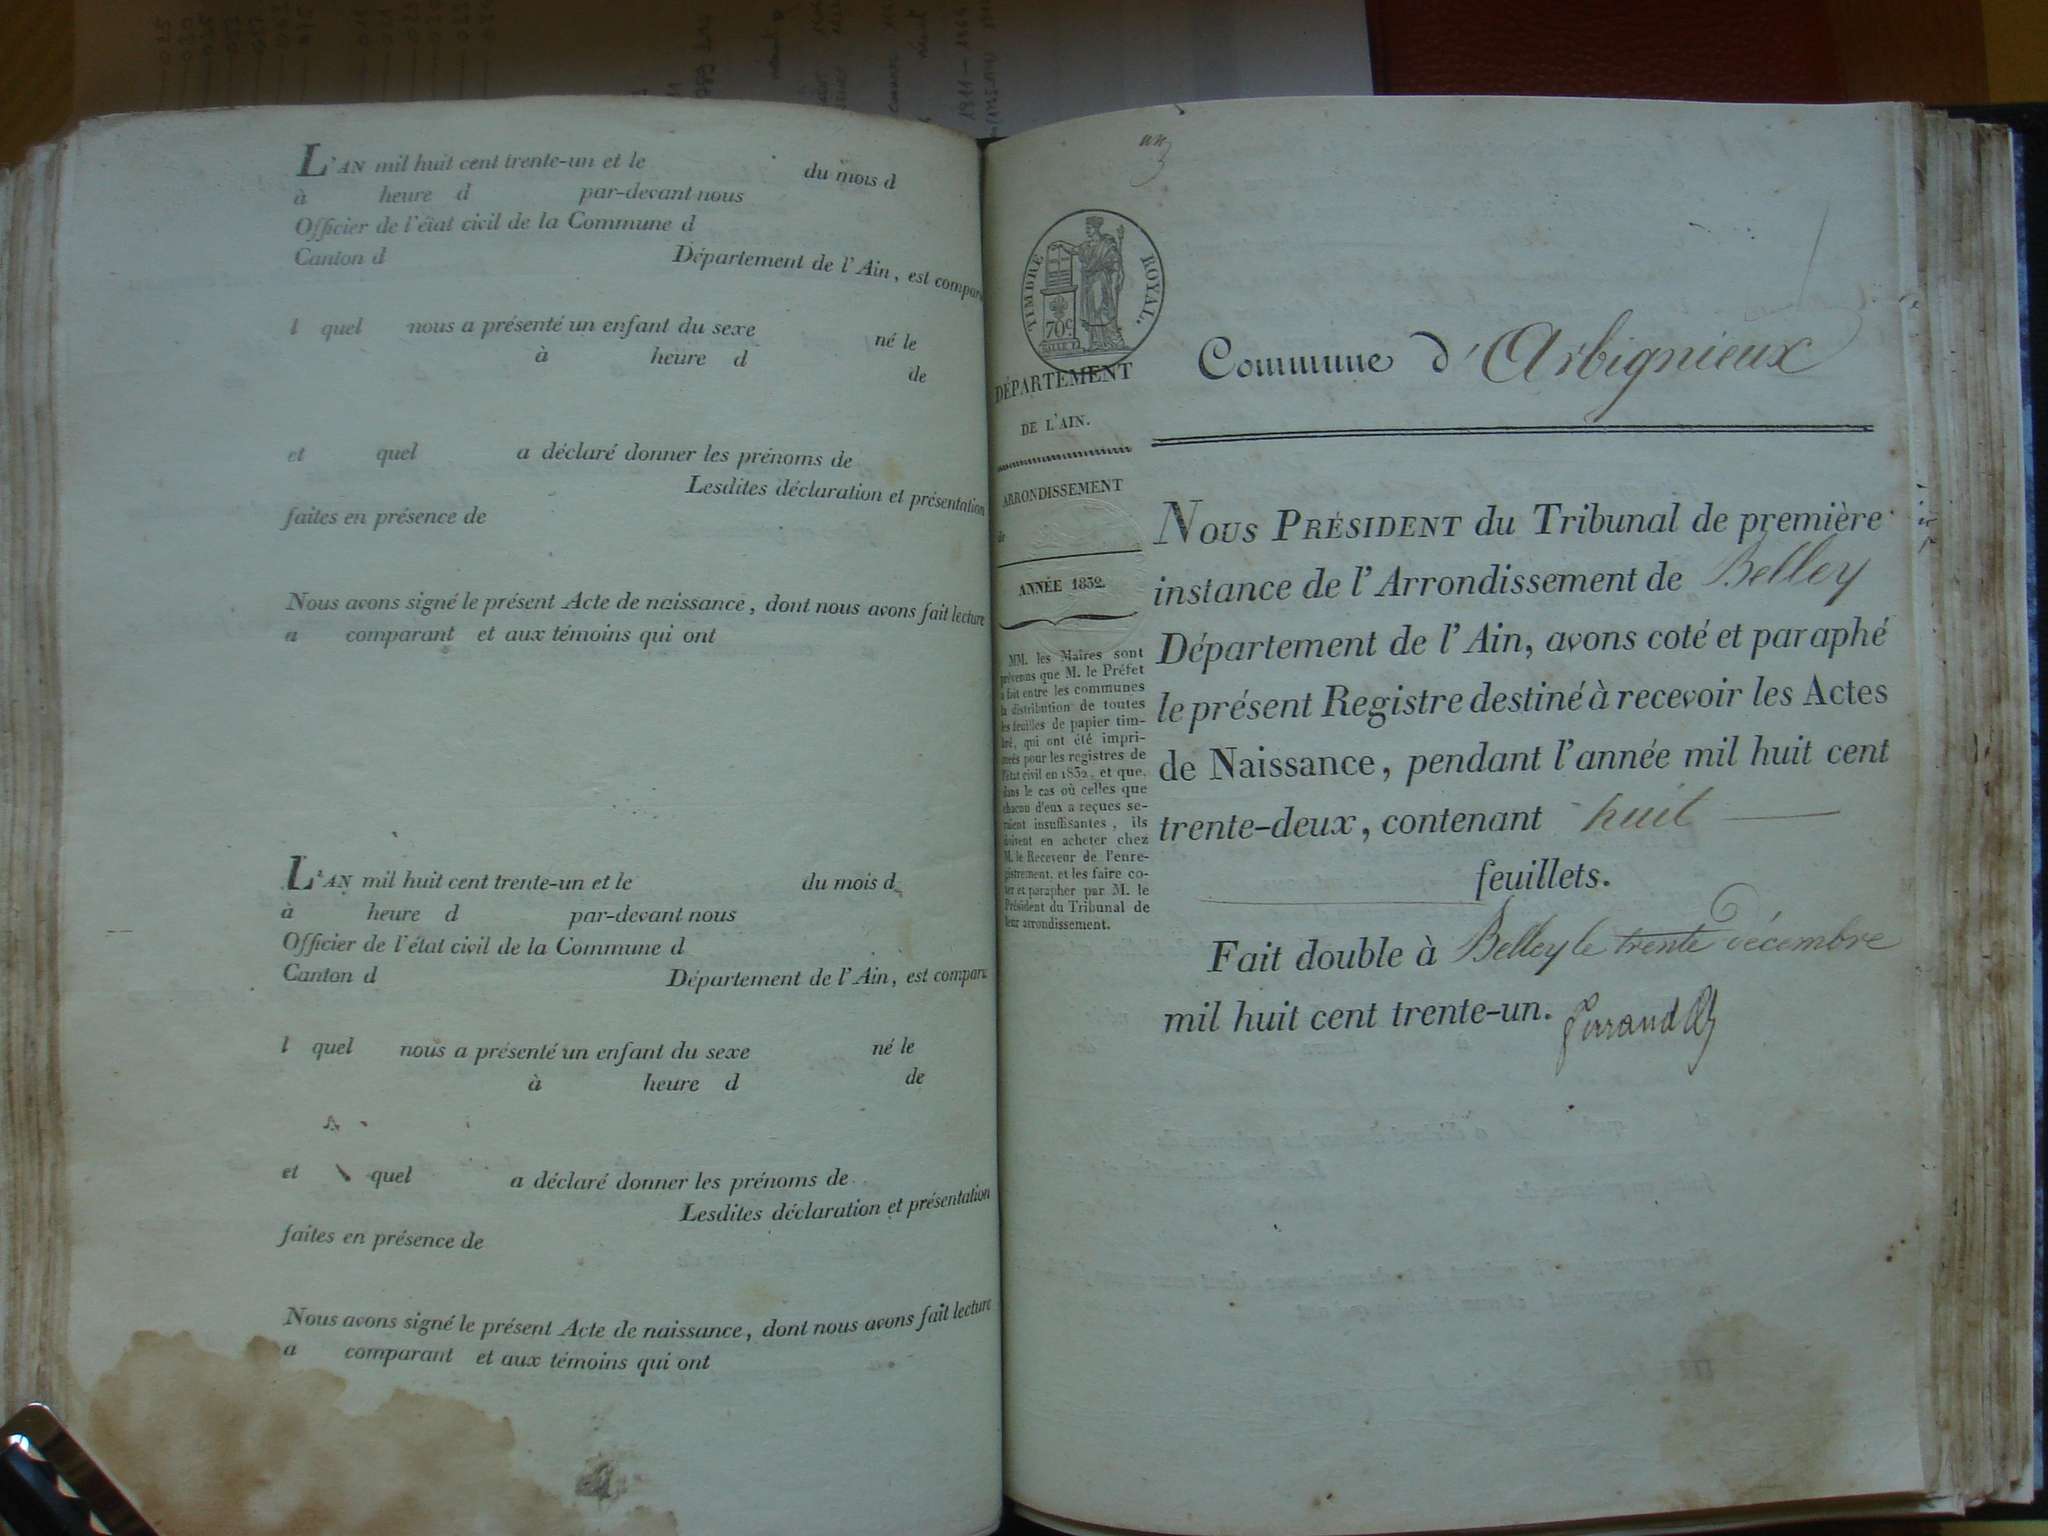 L'AN mil huit cent trente-un et le du mois d
à heure d par-devant nous
Officier de l'état civil de la Commune d
Canton d Département de l'Ain, est comparu
l quel nous a présenté un enfant du sexe né le
à heure d de
et quel a déclaré donner les prénoms de
Lesdites déclaration et présentation
faites en présence de
Nous avons signé le présent Acte de naissance, dont nous avons fait lecture
a comparant et aux témoins qui ont
L'AN mil huit cent trente-un et le du mois d
à heure d par-devant nous
Officier de l'état civil de la Commune d
Canton d Département de l'Ain, est comparu
l quel nous a présenté un enfant du sexe né le
à heure d de
et quel a déclaré donner les prénoms de
Lesdites déclaration et présentation
faites en présence de
Nous avons signé le présent Acte de naissance, dont nous avons fait lecture
a comparant et aux témoins qui ont
un
TIMBRE ROYAL.
70c
DÉPARTEMENT
DE L'AIN.
ARRONDISSEMENT
de
ANNÉE 1832.
MM. les Maires sont
prévenus que M. le Préfet
a fait entre les communes
la distribution de toutes
les feuilles de papier tim-
bré, qui ont été impri-
mées pour les registres de
l'état civil en 1832, et que,
dans le cas où celles que
chacun d'eux a reçues se-
raient insuffisantes, ils
doivent en acheter chez
M. le Receveur de l'enre-
gistrement, et les faire co-
ter et parapher par M. le
Président du Tribunal de
leur arrondissement.
Commune d'Arbignieux
NOUS PRÉSIDENT du Tribunal de première
instance de l'Arrondissement de Belley
Département de l'Ain, avons coté et paraphé
le présent Registre destiné à recevoir les Actes
de Naissance, pendant l'année mil huit cent
trente-deux, contenant huit
feuillets.
Fait double à Belley le trente décembre
mil huit cent trente-un.